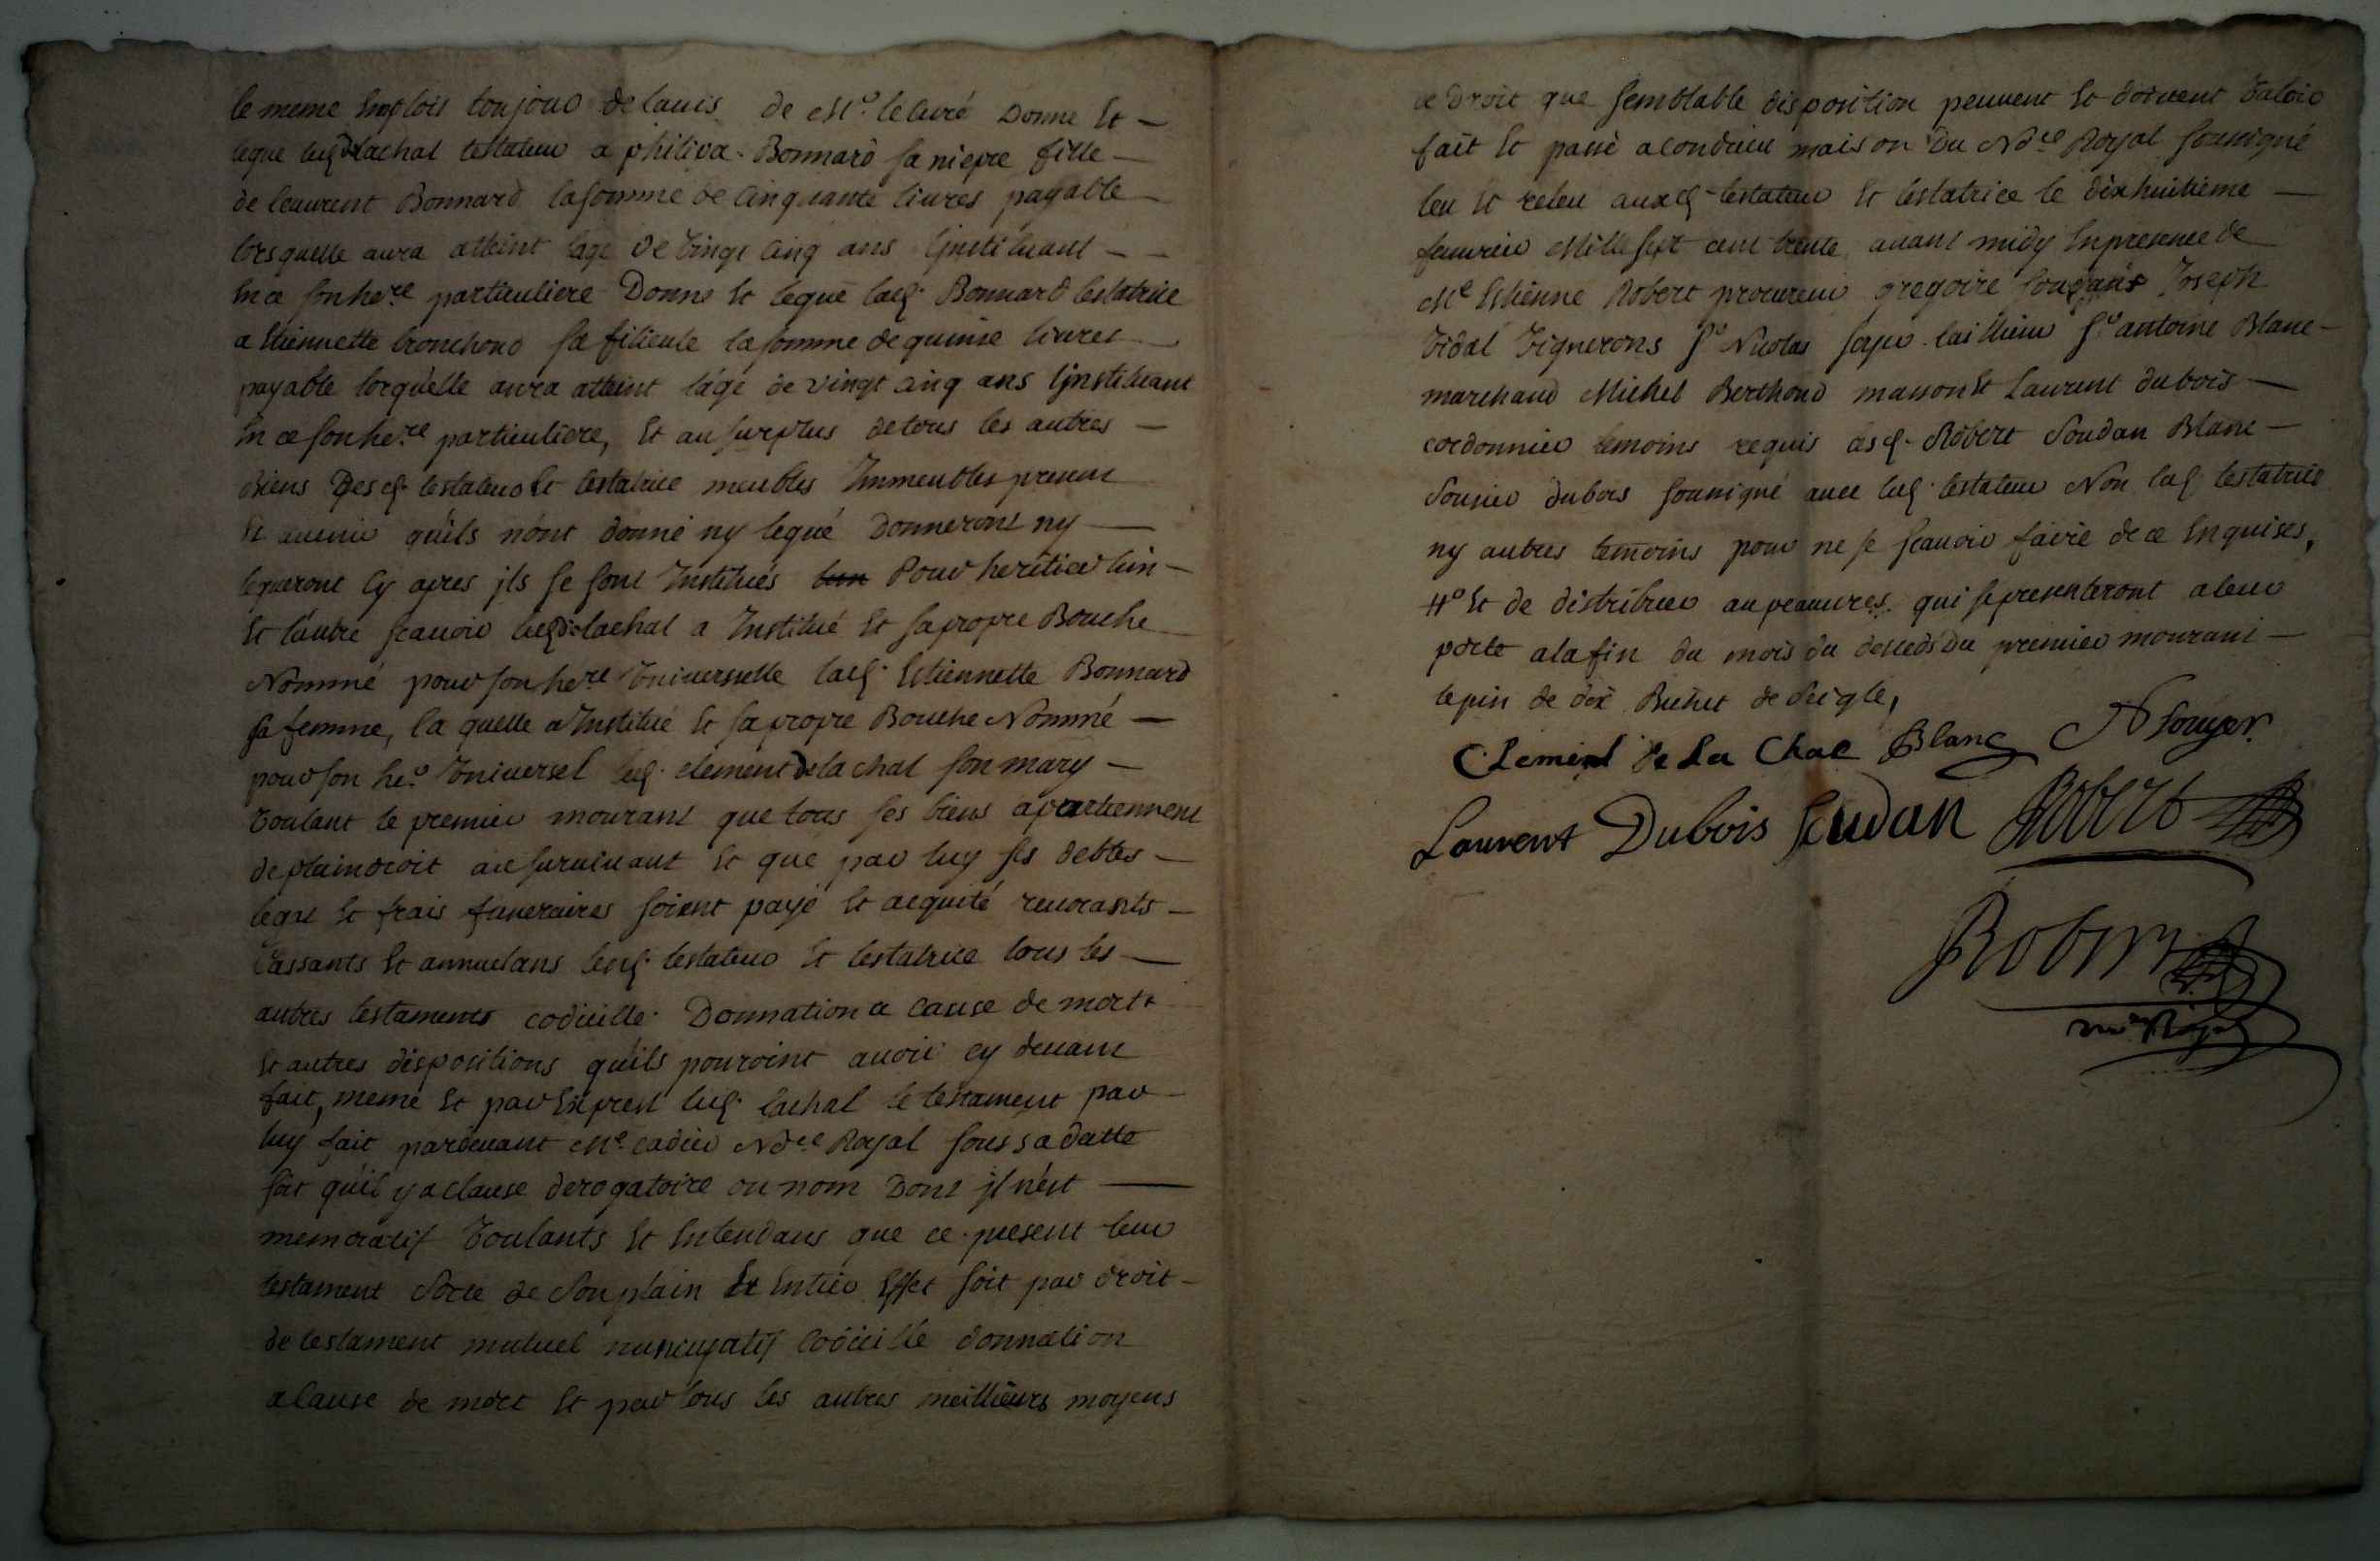 le meme Emplois toujour de lauis de Mr. le curé Donne Et
legue led. Delachal testateur a philipa Bonnard sa niepce fille
de leaurent Bonnard la somme de Cinquante liures payable
lors quelle aura atteint lage de vingt Cinq ans Ynstituant
En ce son here. particuliere Donne Et legue lad. Bonnard testatrice
a Etiennette bronchoud sa filieule la somme de quinse liures
payable lorqu'elle aura atteint l'age de vingt cinq ans Ynstituant
En ce son here. particuliere, Et au surplus de tous les autres
Biens Desd. testateur Et testatrice meubles Immeubles present
Et auenir qu'ils n'ont donné ny legué Donneront ny
legueront Cy apres jls se sont Institués lun Pour heritier lun
Et l'autre scauoir led. Delachal a Institué Et sa propre Bouche
Nommé pour son here. Vniuerselle lad. Etiennette Bonnard
sa femme, la quelle a Institué Et sa propre Bouche Nommé
pour son her. Vniuersel led. clement Delachal son mary
Voulant le premier mourant que tous ses biens apartiennent
de plain droit au suruiuant Et que par luy ses debtes
legat Et frais funeraires soient payé Et acquité reuocants
Cassants Et annuelans lesd. testateur Et testatrice tous les
autres testaments codicille Donnation a cause de mort
Et autres dispositions qu'ils pouroint auoir cy deuant
fait, meme Et par Exprest led. lachal le testament par
luy fait pardeuant Me. cadier Nore. Royal sous sa datte
soit qu'il y a clause derogatoire ou nom Dont jl nest
memoratif Voulants Et Entendans que ce present leur
testament Sorte de Son plain Et Entier Effet soit par droit
de testament mutuel nuncupatif Codicille donnation
a Cause de mort Et par tous les autres meillieurs moyens
de Droit que semblable disposition peuuent Et doiuent Valoir
fait Et passé a condrieu maison Du Nore. Royal sousigné
leu Et releu auxd. testateur Et testatrice le dixhuitieme
feuurier Mille sept cent trente auant midy En presence de
Me Etienne Robert procureur gregoire soudans Joseph
Vidal Vignerons Sr. Nicolas tailleur Sr. antoine Blanc
marchand Michel Berthoud masson Et Laurent dubois
cordonnier temoins requis lesd. Robert Soudan Blanc
dubois sousigné auec led. testateur Non lad. testatrice
ny autres temoins pour ne le scauoir faire de ce Enquises,
Et de distribuer au peauures qui se presenteront a leur
porte a la fin du mois du deceds Du premier mourant
le pin de dix Bichet de Seigle,
Clement de La Chal Blanc
Laurent Dubois Soudan Robert
Robert
nore Royal